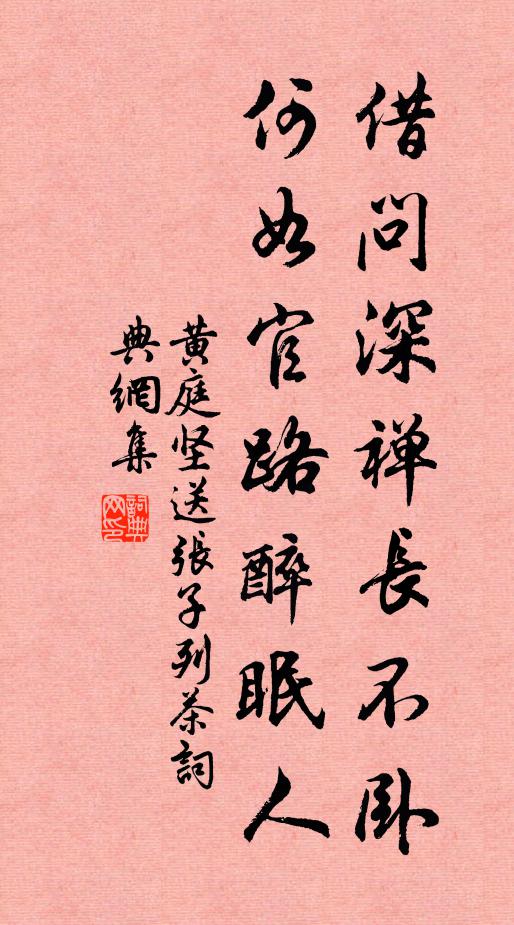 借问深禅長不卧
何如官路醉眠人
黄庭坚送張子列茶詞
典網集
詞典網印